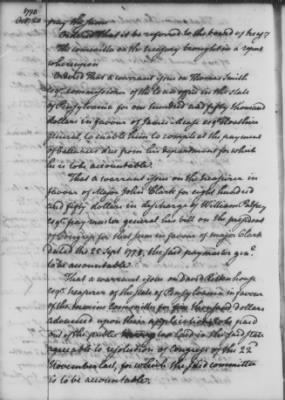 1778
Oct. 20
pay the same
Ordered That it be referred to the board of treasy
The committee on the treasury brought in a report
whereupon
Ordered That a warrant issue on Thomas Smith
esqr commissioner of the loan office in the state
of Pensylvania for one hundred and fifty thousand
dollars in favour of James Mease esqr Cloathier
general, to enable him to compleat the payment
of ballances due from his department for which
he is to be accountable.
That a warrant issue on the treasurer in
favour of Major John Clark for eight hundred
and fifty dollars in discharge of William Palfrey
esqr pay master general his bill on the president
of Congress for that sum in favour of major Clark
dated the 25 Sept 1778, the said paymaster genl
to be accountable.
That a warrant issue on David Rittenhouse
esqr treasurer of the state of Pensylvania in favour
of the marine Committee for five thousand dollars
advanced upon their application, to be paid
out of the public money in the said state
agreeable to resolution of Congress of the 22d
November last, for which the said committee
is to be accountable.